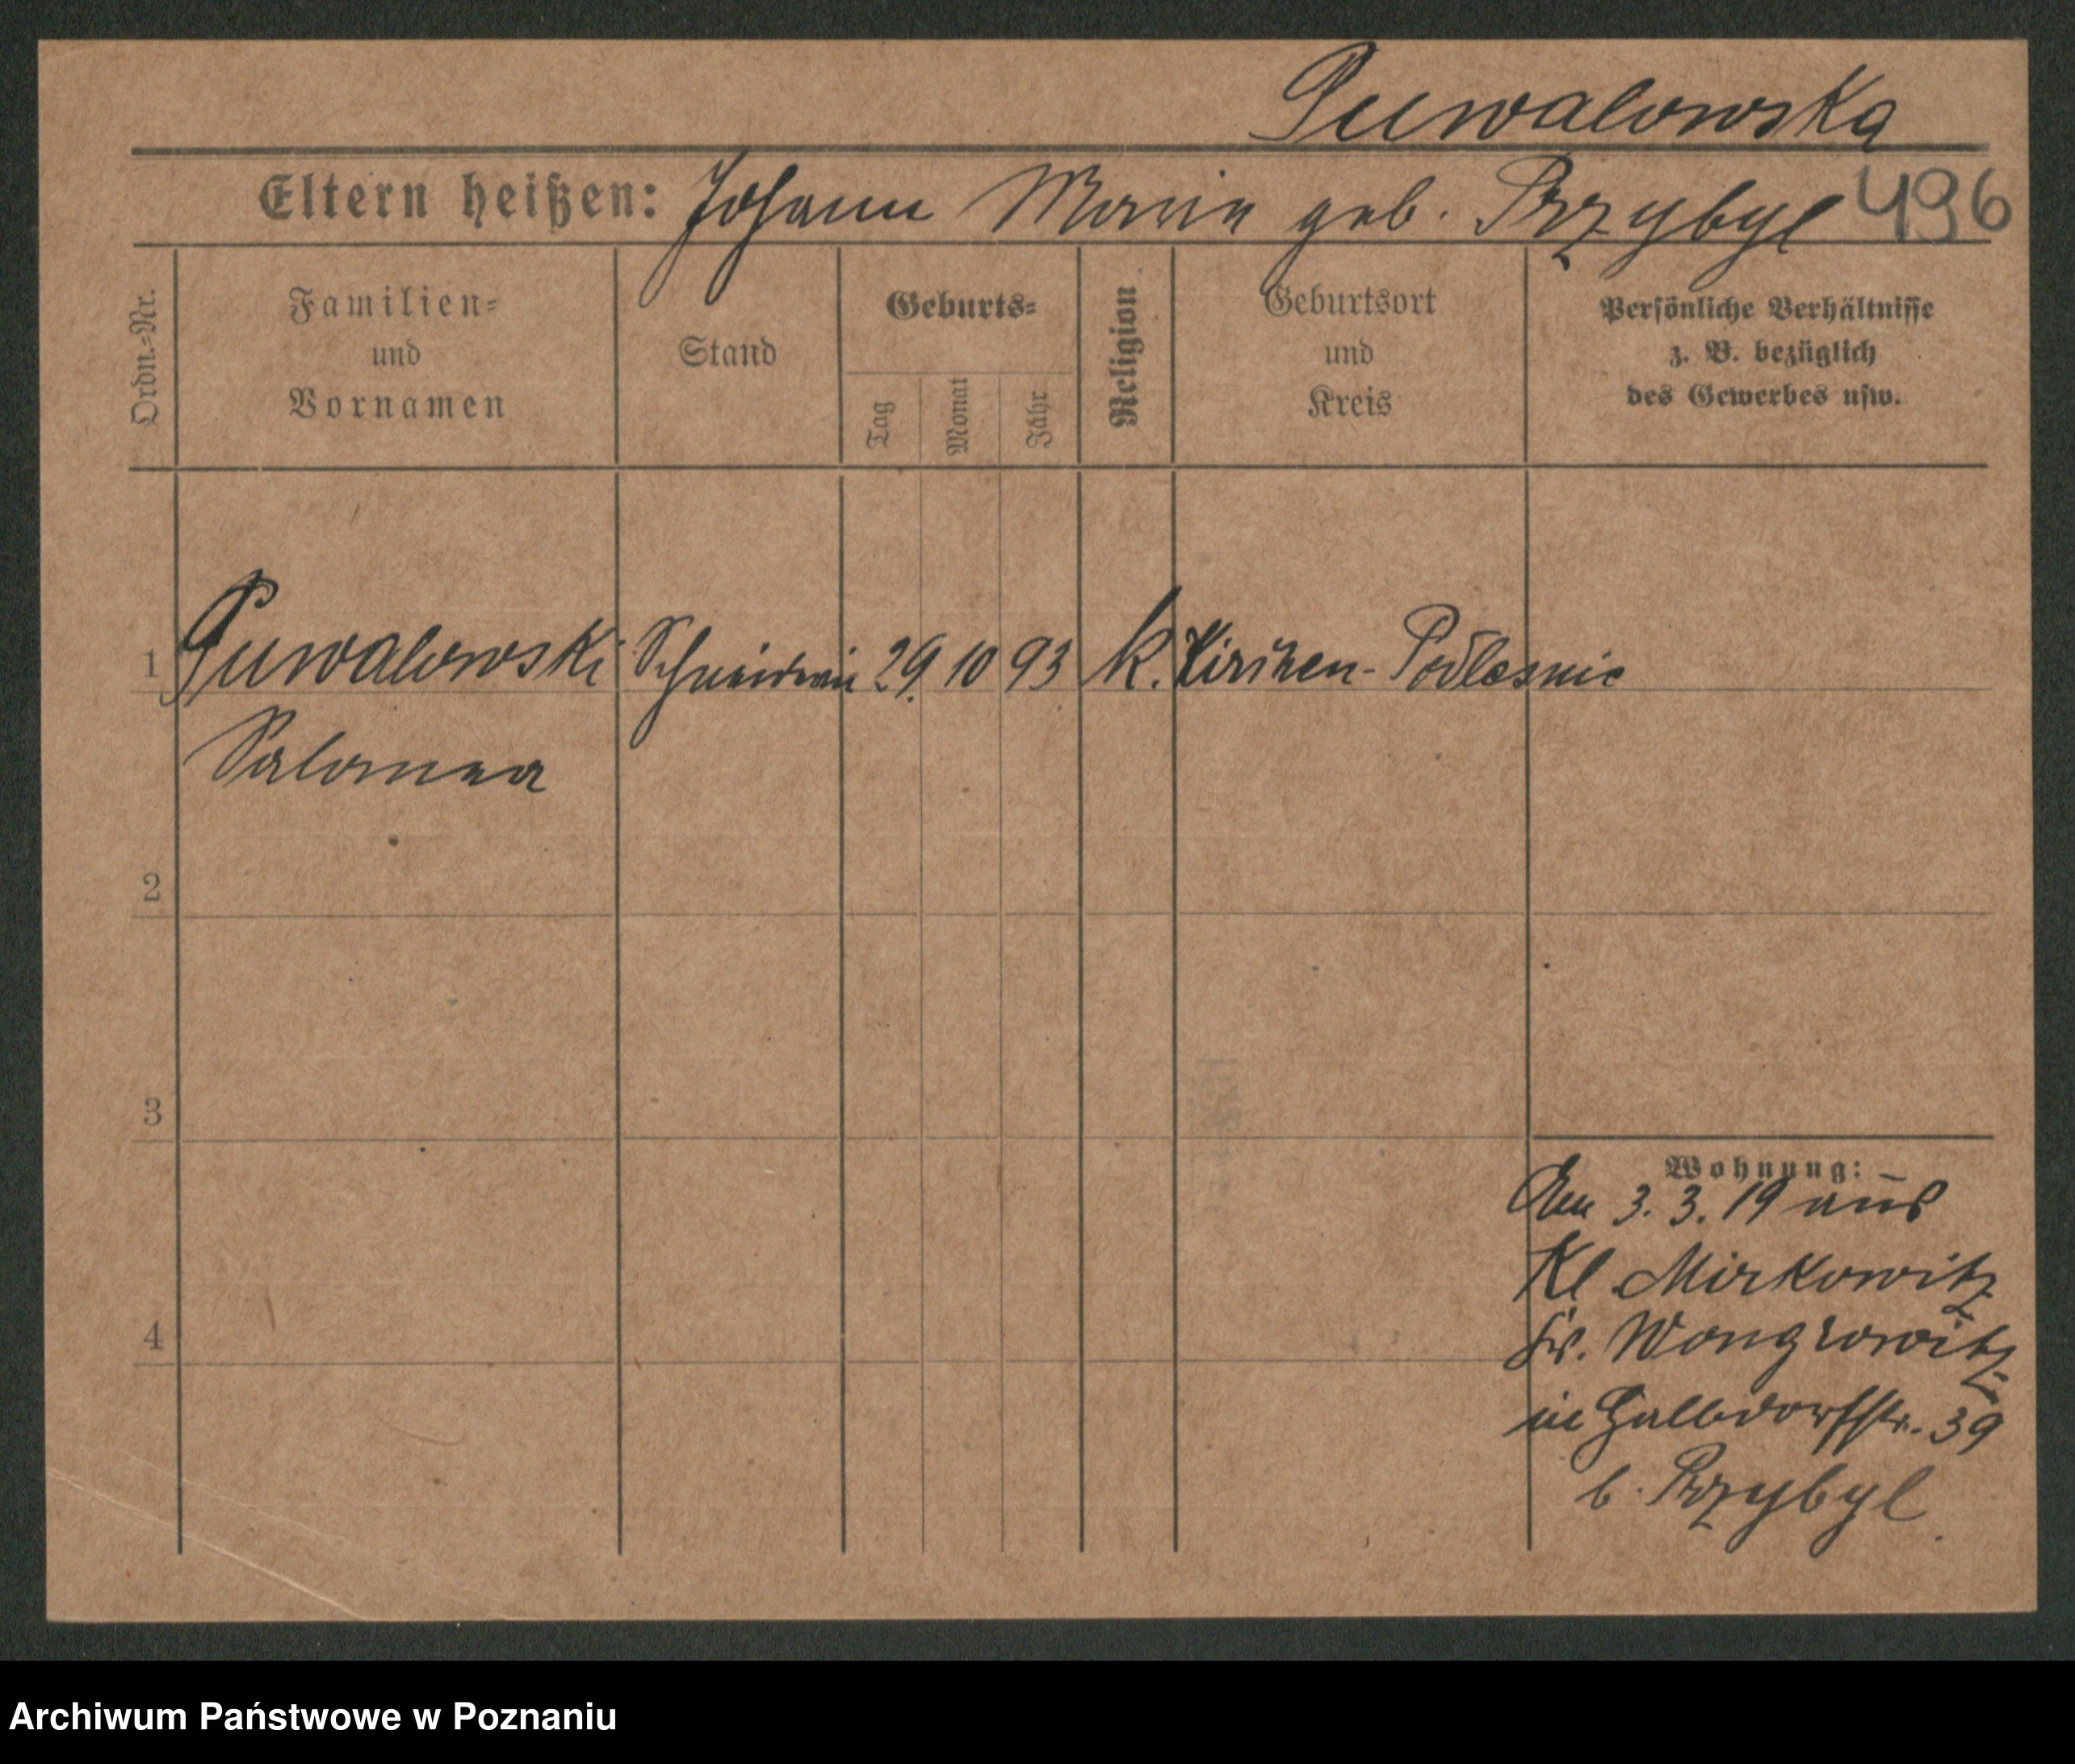 Puwalowska
Eltern heißen: Johann Marie geb. Przybyl 496
Ordn.-Nr.
Familien-
und
Vornamen
Stand
Geburts-
Tag
Monat
Jahr
Religion
Geburtsort
und
Kreis
Persönliche Verhältnisse
z. B. bezüglich
des Gewerbes usw.
1 Puwalowski Schneiderin 29. 10 93 K. Kirchen-Podlesnie
Salomea
2
3
4
Wohnung:
Am 3.3.19 aus
Kl Mirkowitz
Kr. Wongrowitz
in Halbdorfstr. 39
b. Przybyl
Archiwum Państwowe w Poznaniu